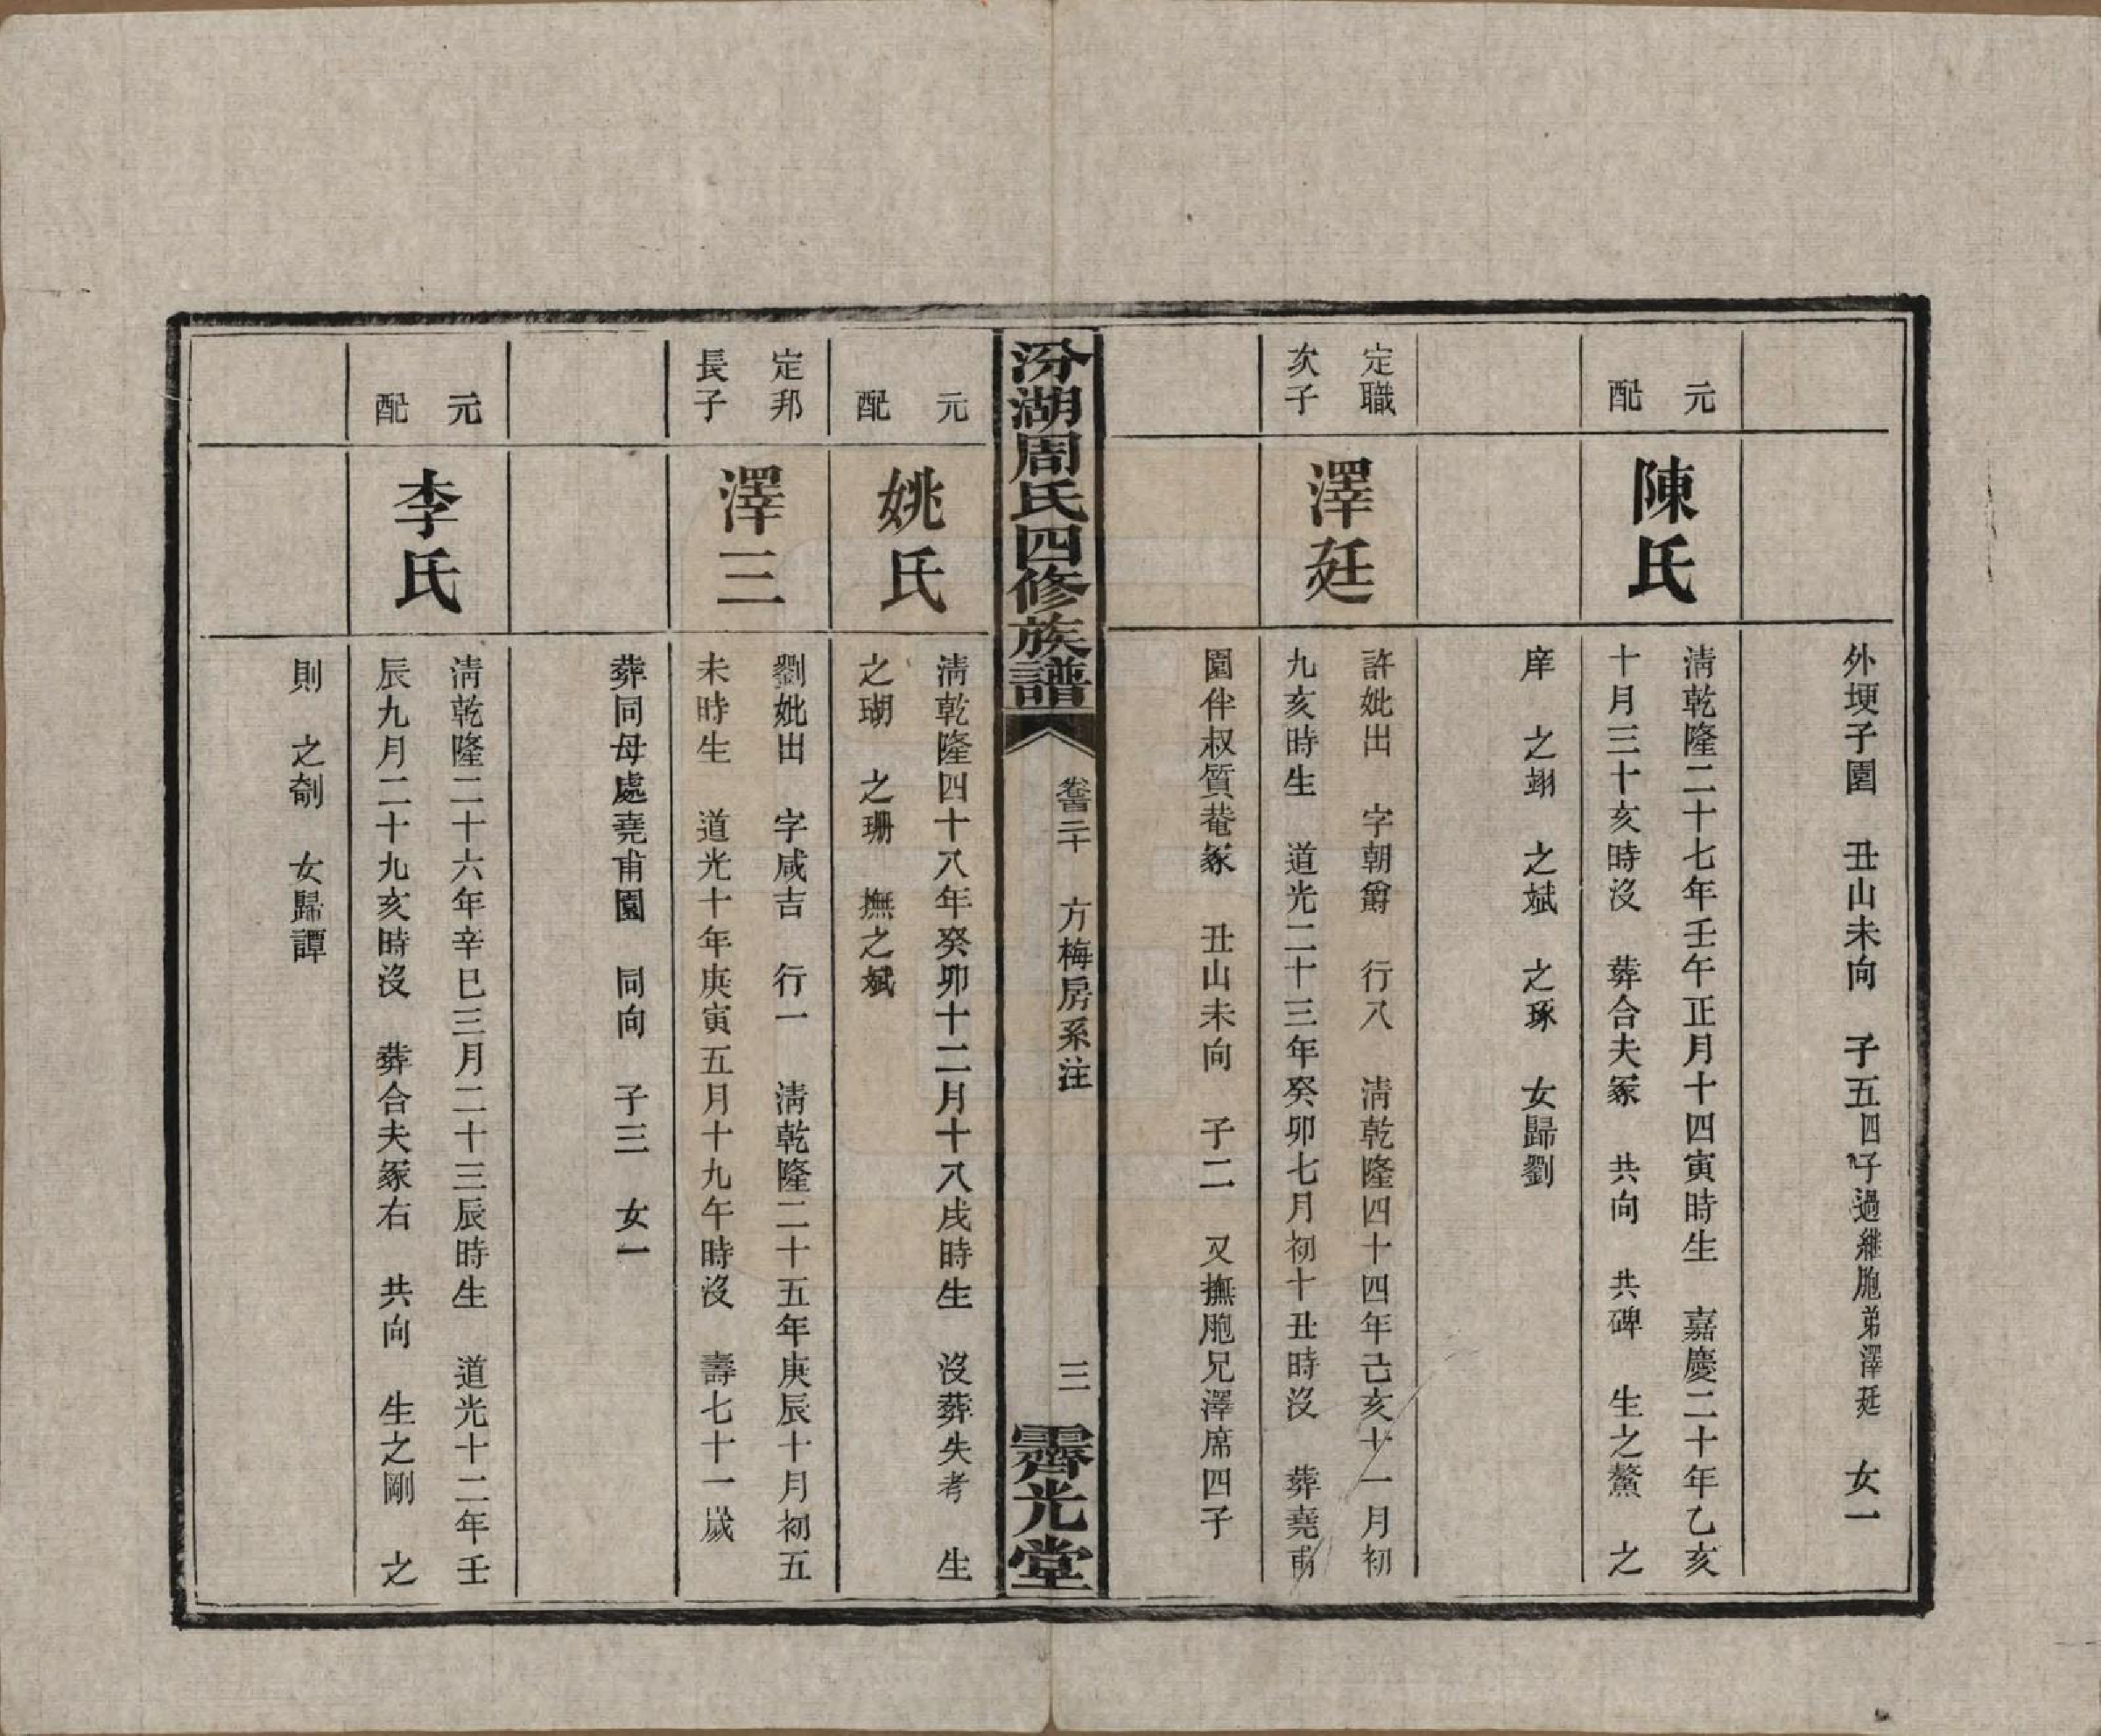 外埂子園 丑山未向 子五 四子過継胞弟澤廷 女一
元配
陳氏
清乾隆二十七年壬午正月十四寅時生 嘉慶二十年乙亥
十月三十亥時沒 葬合夫冢 共向 共碑 生之鰲 之
庠 之翊 之斌 之琢 女歸劉
定職
次子
澤廷
許妣出 字朝爵 行八 清乾隆四十四年己亥十一月初
九亥時生 道光二十三年癸卯七月初十丑時沒 葬堯甫
園伴叔質菴冢 丑山未向 子二 又撫胞兄澤席四子
汾湖周氏四修族譜
卷二十 方梅房系注
三
霽光堂
元配
姚氏
清乾隆四十八年癸卯十二月十八戌時生 沒葬失考 生
之瑚 之珊 撫之斌
定邦
長子
澤三
劉妣出 字咸吉 行一 清乾隆二十五年庚辰十月初五
未時生 道光十年庚寅五月十九午時沒 壽七十一歲
葬同母處堯甫園 同向 子三 女一
元配
李氏
清乾隆二十六年辛巳三月二十三辰時生 道光十二年壬
辰九月二十九亥時沒 葬合夫冢右 共向 生之剛 之
則 之剞 女歸譚